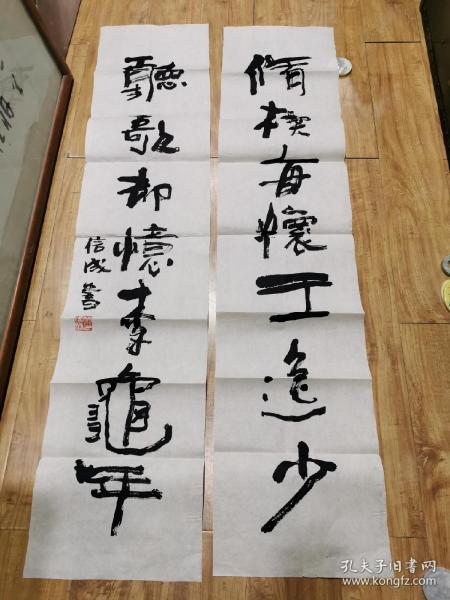 脩禊每懷王逸少
聽歌却憶李龜年
信成書
孔夫子旧书网
www.kongfz.com